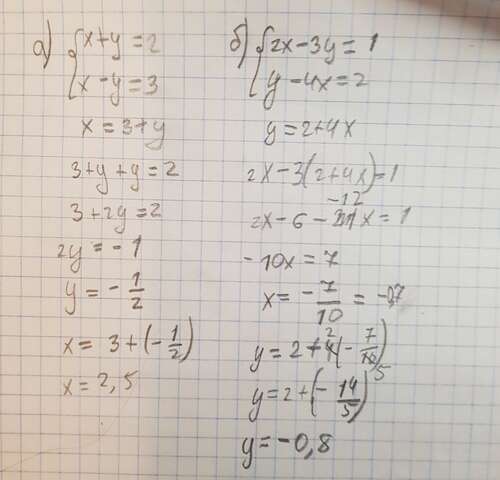 а) { x+y=2
x-y=3
x=3+y
3+y+y=2
3+2y=2
2y=-1
y=-1/2
x=3+(-1/2)
x=2,5
б) { 2x-3y=1
y-4x=2
y=2+4x
2x-3(2+4x)=1
2x-6-12x=1
-10x=7
x=-7/10=-0,7
y=2+4(-7/10)
y=2+(-14/5)
y=-0,8